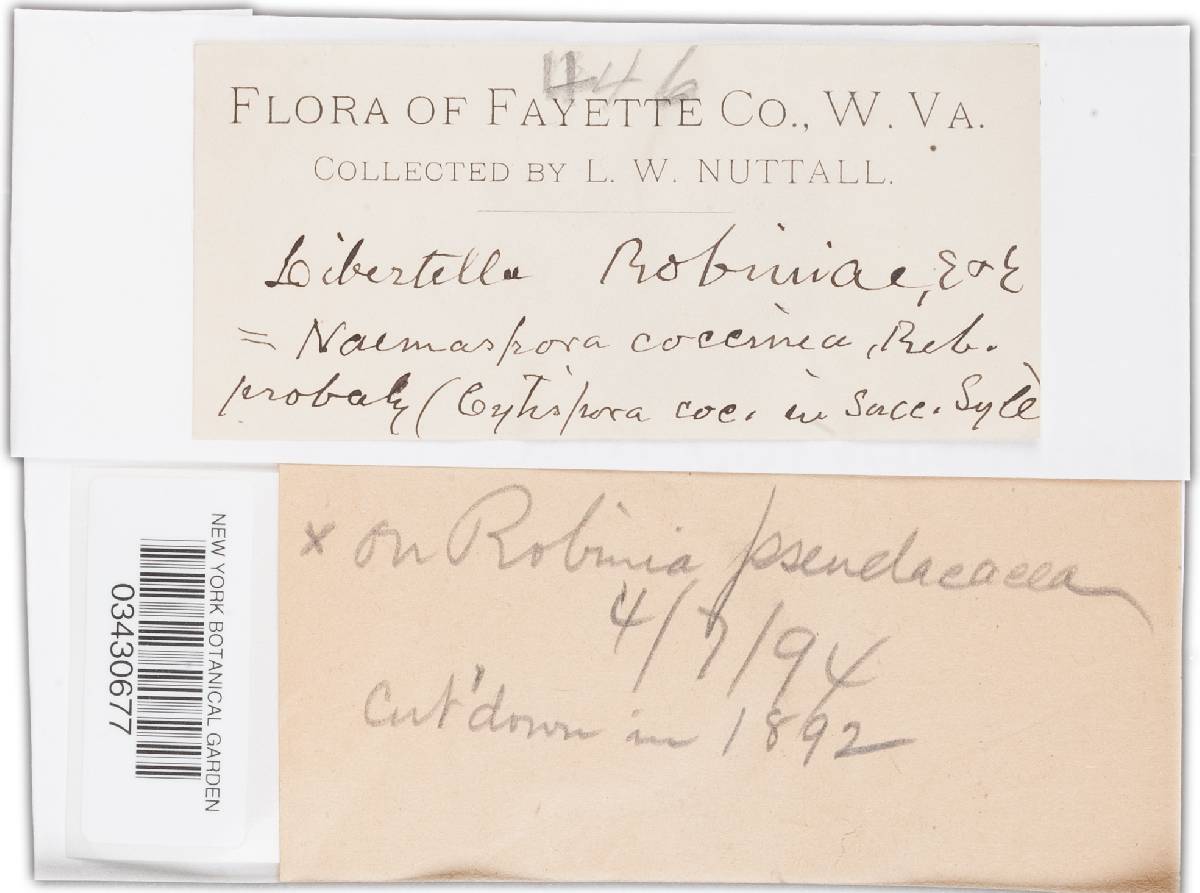 446
FLORA OF FAYETTE CO., W. VA.
COLLECTED BY L. W. NUTTALL.
Libertella Robiniae, E & E
= Naemaspora coccinea, Reb.
probaly (Cytispora coc. in Sacc. Syll
x on Robinia pseudacacea
4/7/94
Cut down in 1892
NEW YORK BOTANICAL GARDEN
03430677